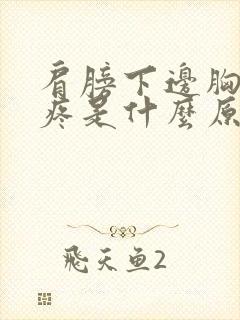 肩膀下邊胸
疼是什麼原
飛天魚2